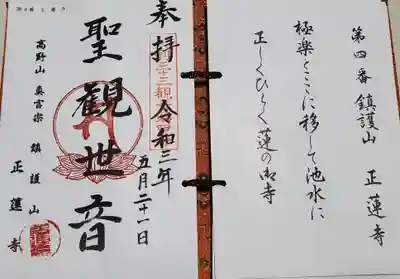 第四番 鎮護山 正蓮寺
極楽をここに移して池水に
正しくひらく蓮の御寺
奉拝 令和三年
五月二十一日
三十三観
聖観世音
高野山真言宗 鎮護山
正蓮寺